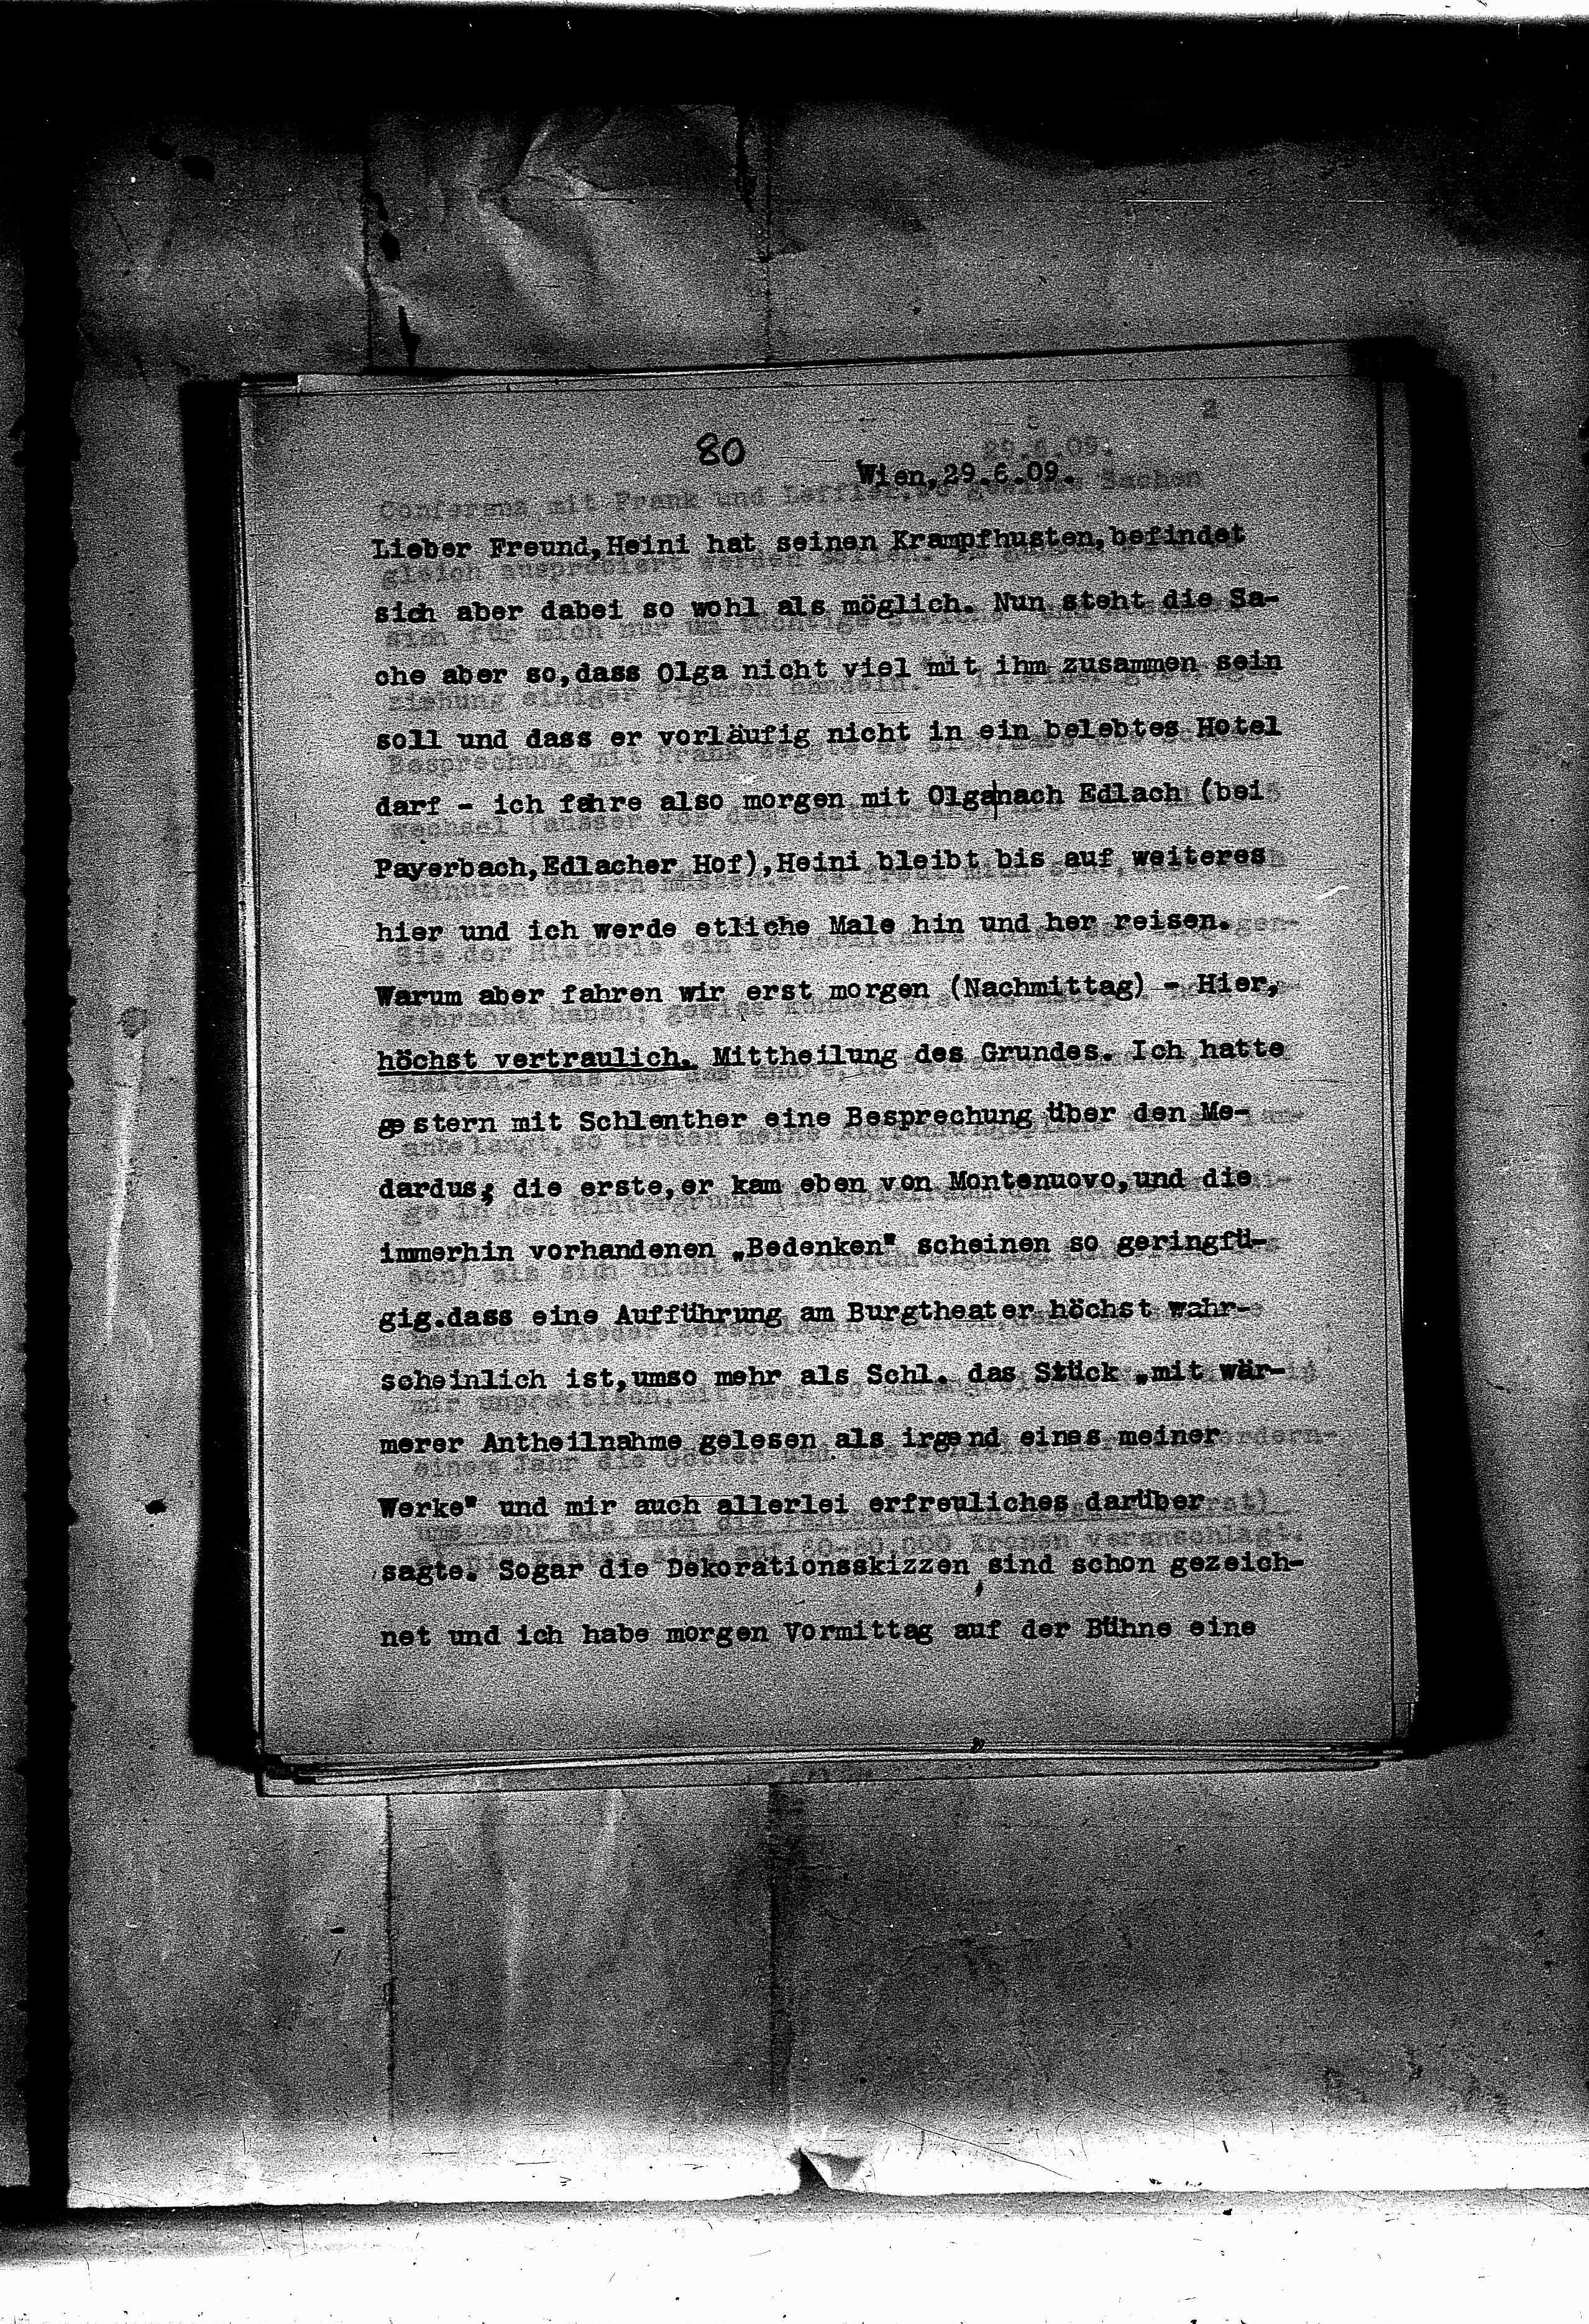 80
Wien,29.6.09.
Lieber Freund,Heini hat seinen Krampfhusten,befindet
sich aber dabei so wohl als möglich. Nun steht die Sa-
che aber so,dass Olga nicht viel mit ihm zusammen sein
soll und dass er vorläufig nicht in ein belebtes Hotel
darf - ich fahre also morgen mit Olga|nach Edlach (bei
Payerbach,Edlacher Hof),Heini bleibt bis auf weiteres
hier und ich werde etliche Male hin und her reisen.
Warum aber fahren wir erst morgen (Nachmittag) - Hier,
höchst vertraulich. Mittheilung des Grundes. Ich hatte
gestern mit Schlenther eine Besprechung über den Me-
dardus; die erste,er kam eben von Montenuovo,und die
immerhin vorhandenen „Bedenken" scheinen so geringfü-
gig.dass eine Aufführung am Burgtheater höchst wahr-
scheinlich ist,umso mehr als Schl. das Stück „mit wär-
merer Antheilnahme gelesen als irgend eines meiner
Werke" und mir auch allerlei erfreuliches darüber
sagte. Sogar die Dekorationsskizzen sind schon gezeich-
net und ich habe morgen Vormittag auf der Bühne eine